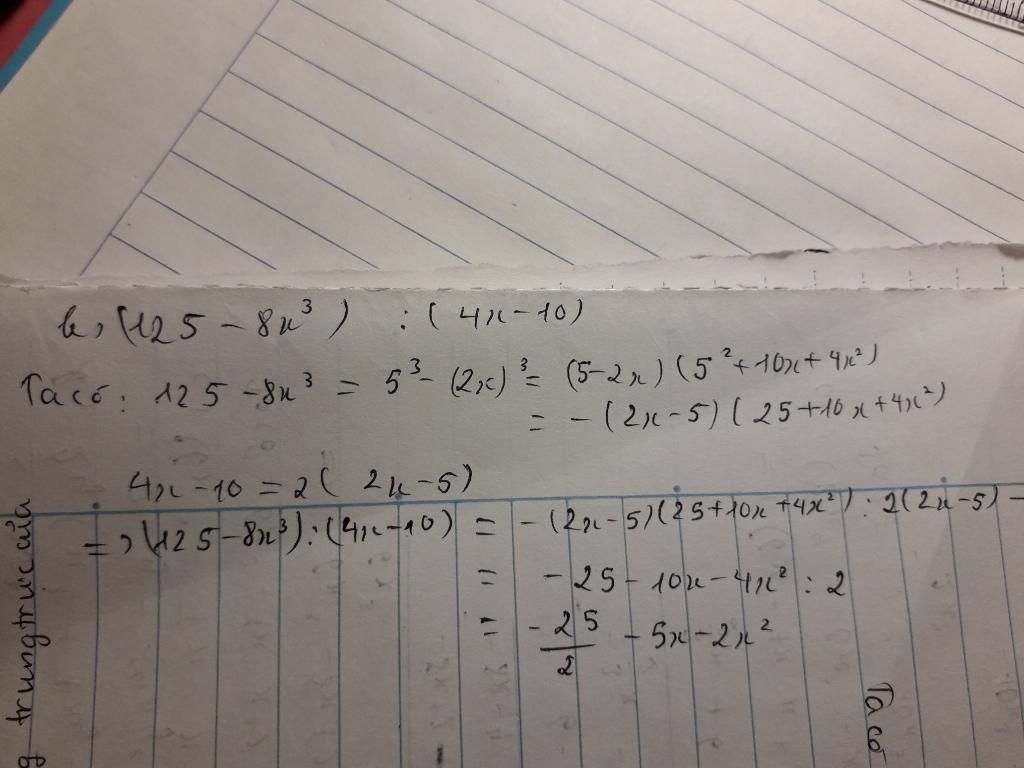 b, (125 - 8x³) : (4x - 10)
Ta có: 125 - 8x³ = 5³ - (2x)³ = (5 - 2x)(5² + 10x + 4x²)
= - (2x - 5)(25 + 10x + 4x²)
4x - 10 = 2(2x - 5)
=> (125 - 8x³) : (4x - 10) = - (2x - 5)(25 + 10x + 4x²) : 2(2x - 5)
= - 25 - 10x - 4x² : 2
= -25/2 - 5x - 2x²
g trung trực của
Ta có